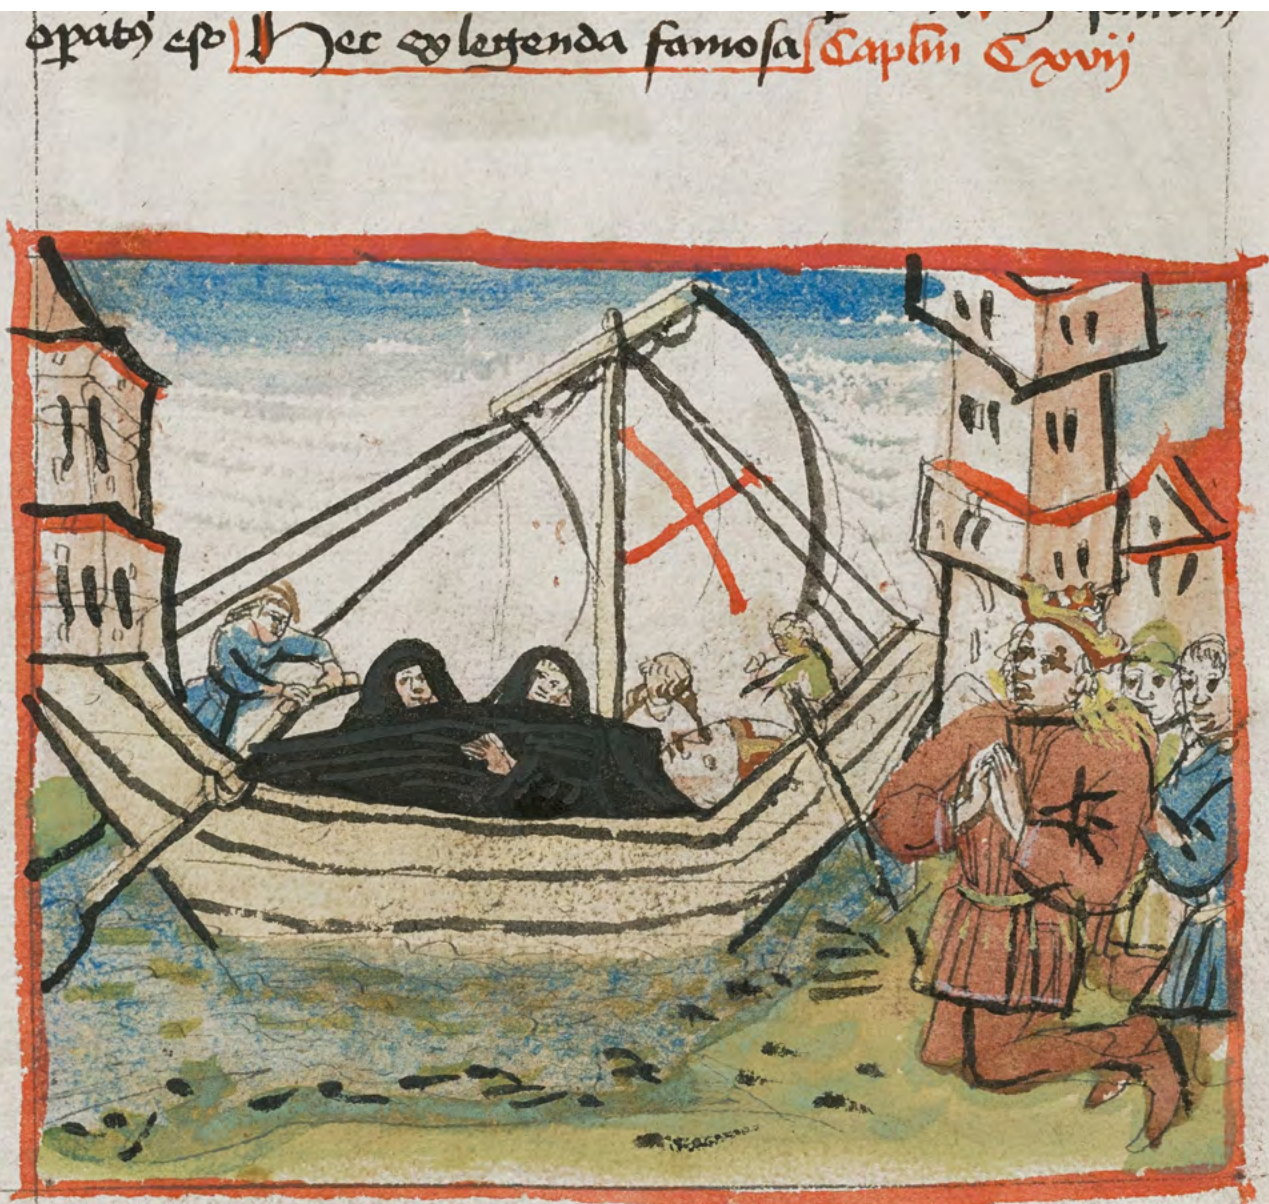 opatꝰ eſt Hec ex legenda famosa Caplm Cxvij